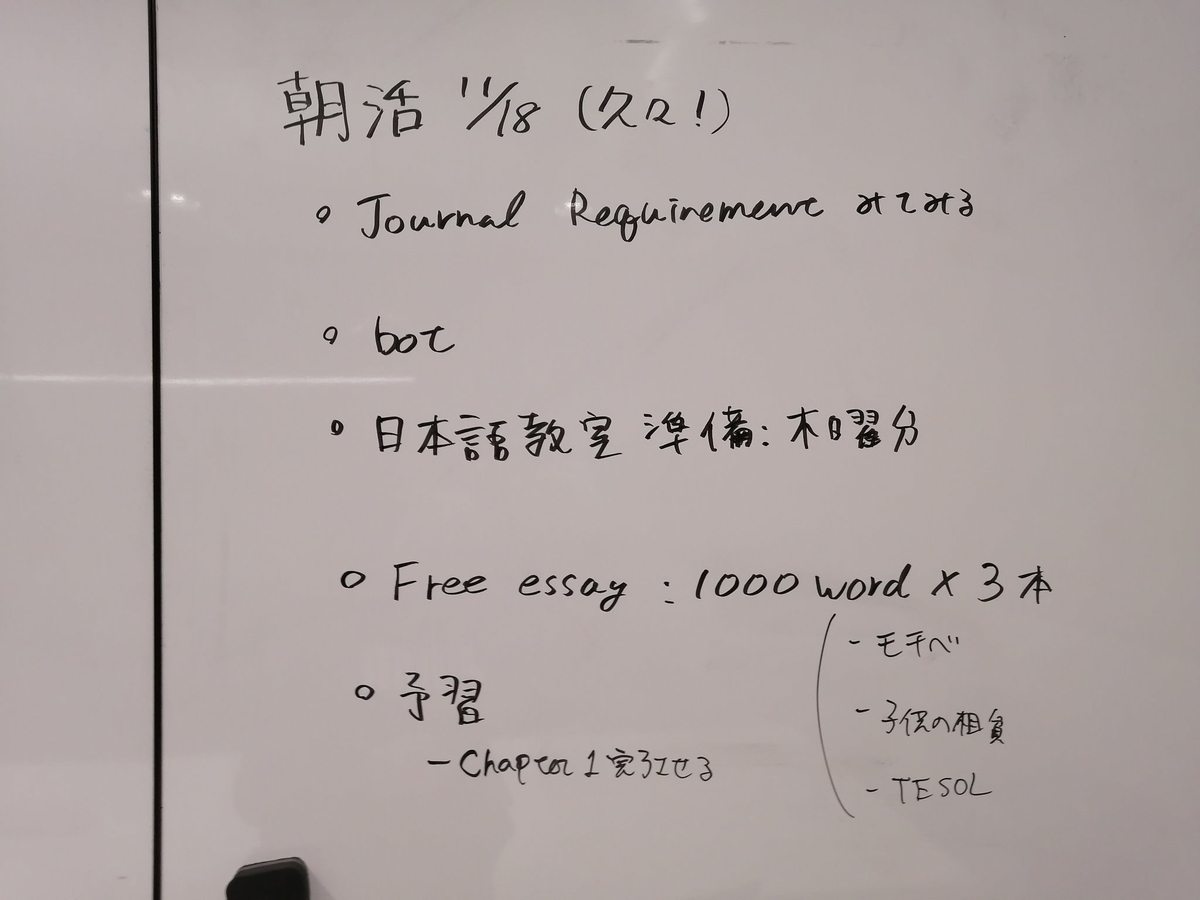 朝活 11/18 (久々!)
Journal Requirement みてみる
bot
日本語教室 準備: 木曜分
Free essay : 1000 word × 3本
- モチベ
- 子供の
- TESOL
予習
- Chapter 1 完了させる